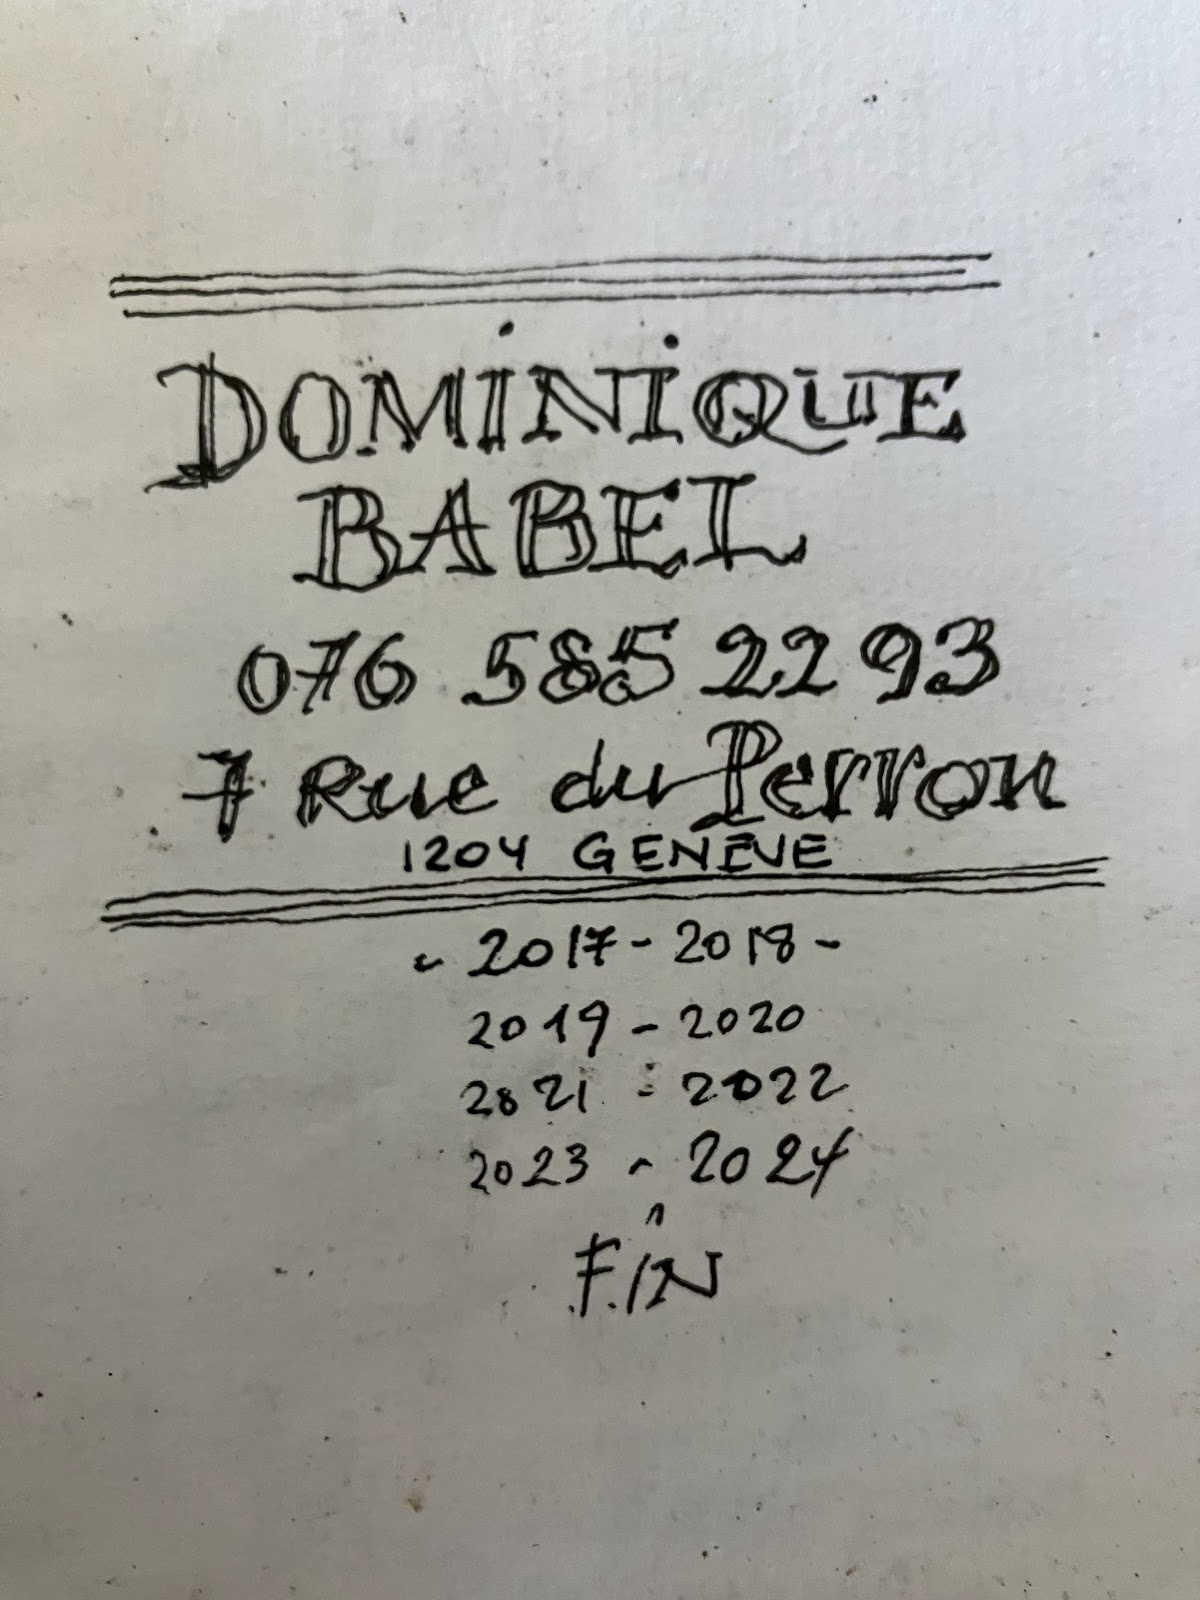 DOMINIQUE
BABEL
076 585 22 93
7 Rue du Perron
1204 GENÈVE
- 2017 - 2018 -
2019 - 2020
2021 - 2022
2023 - 2024
FIN